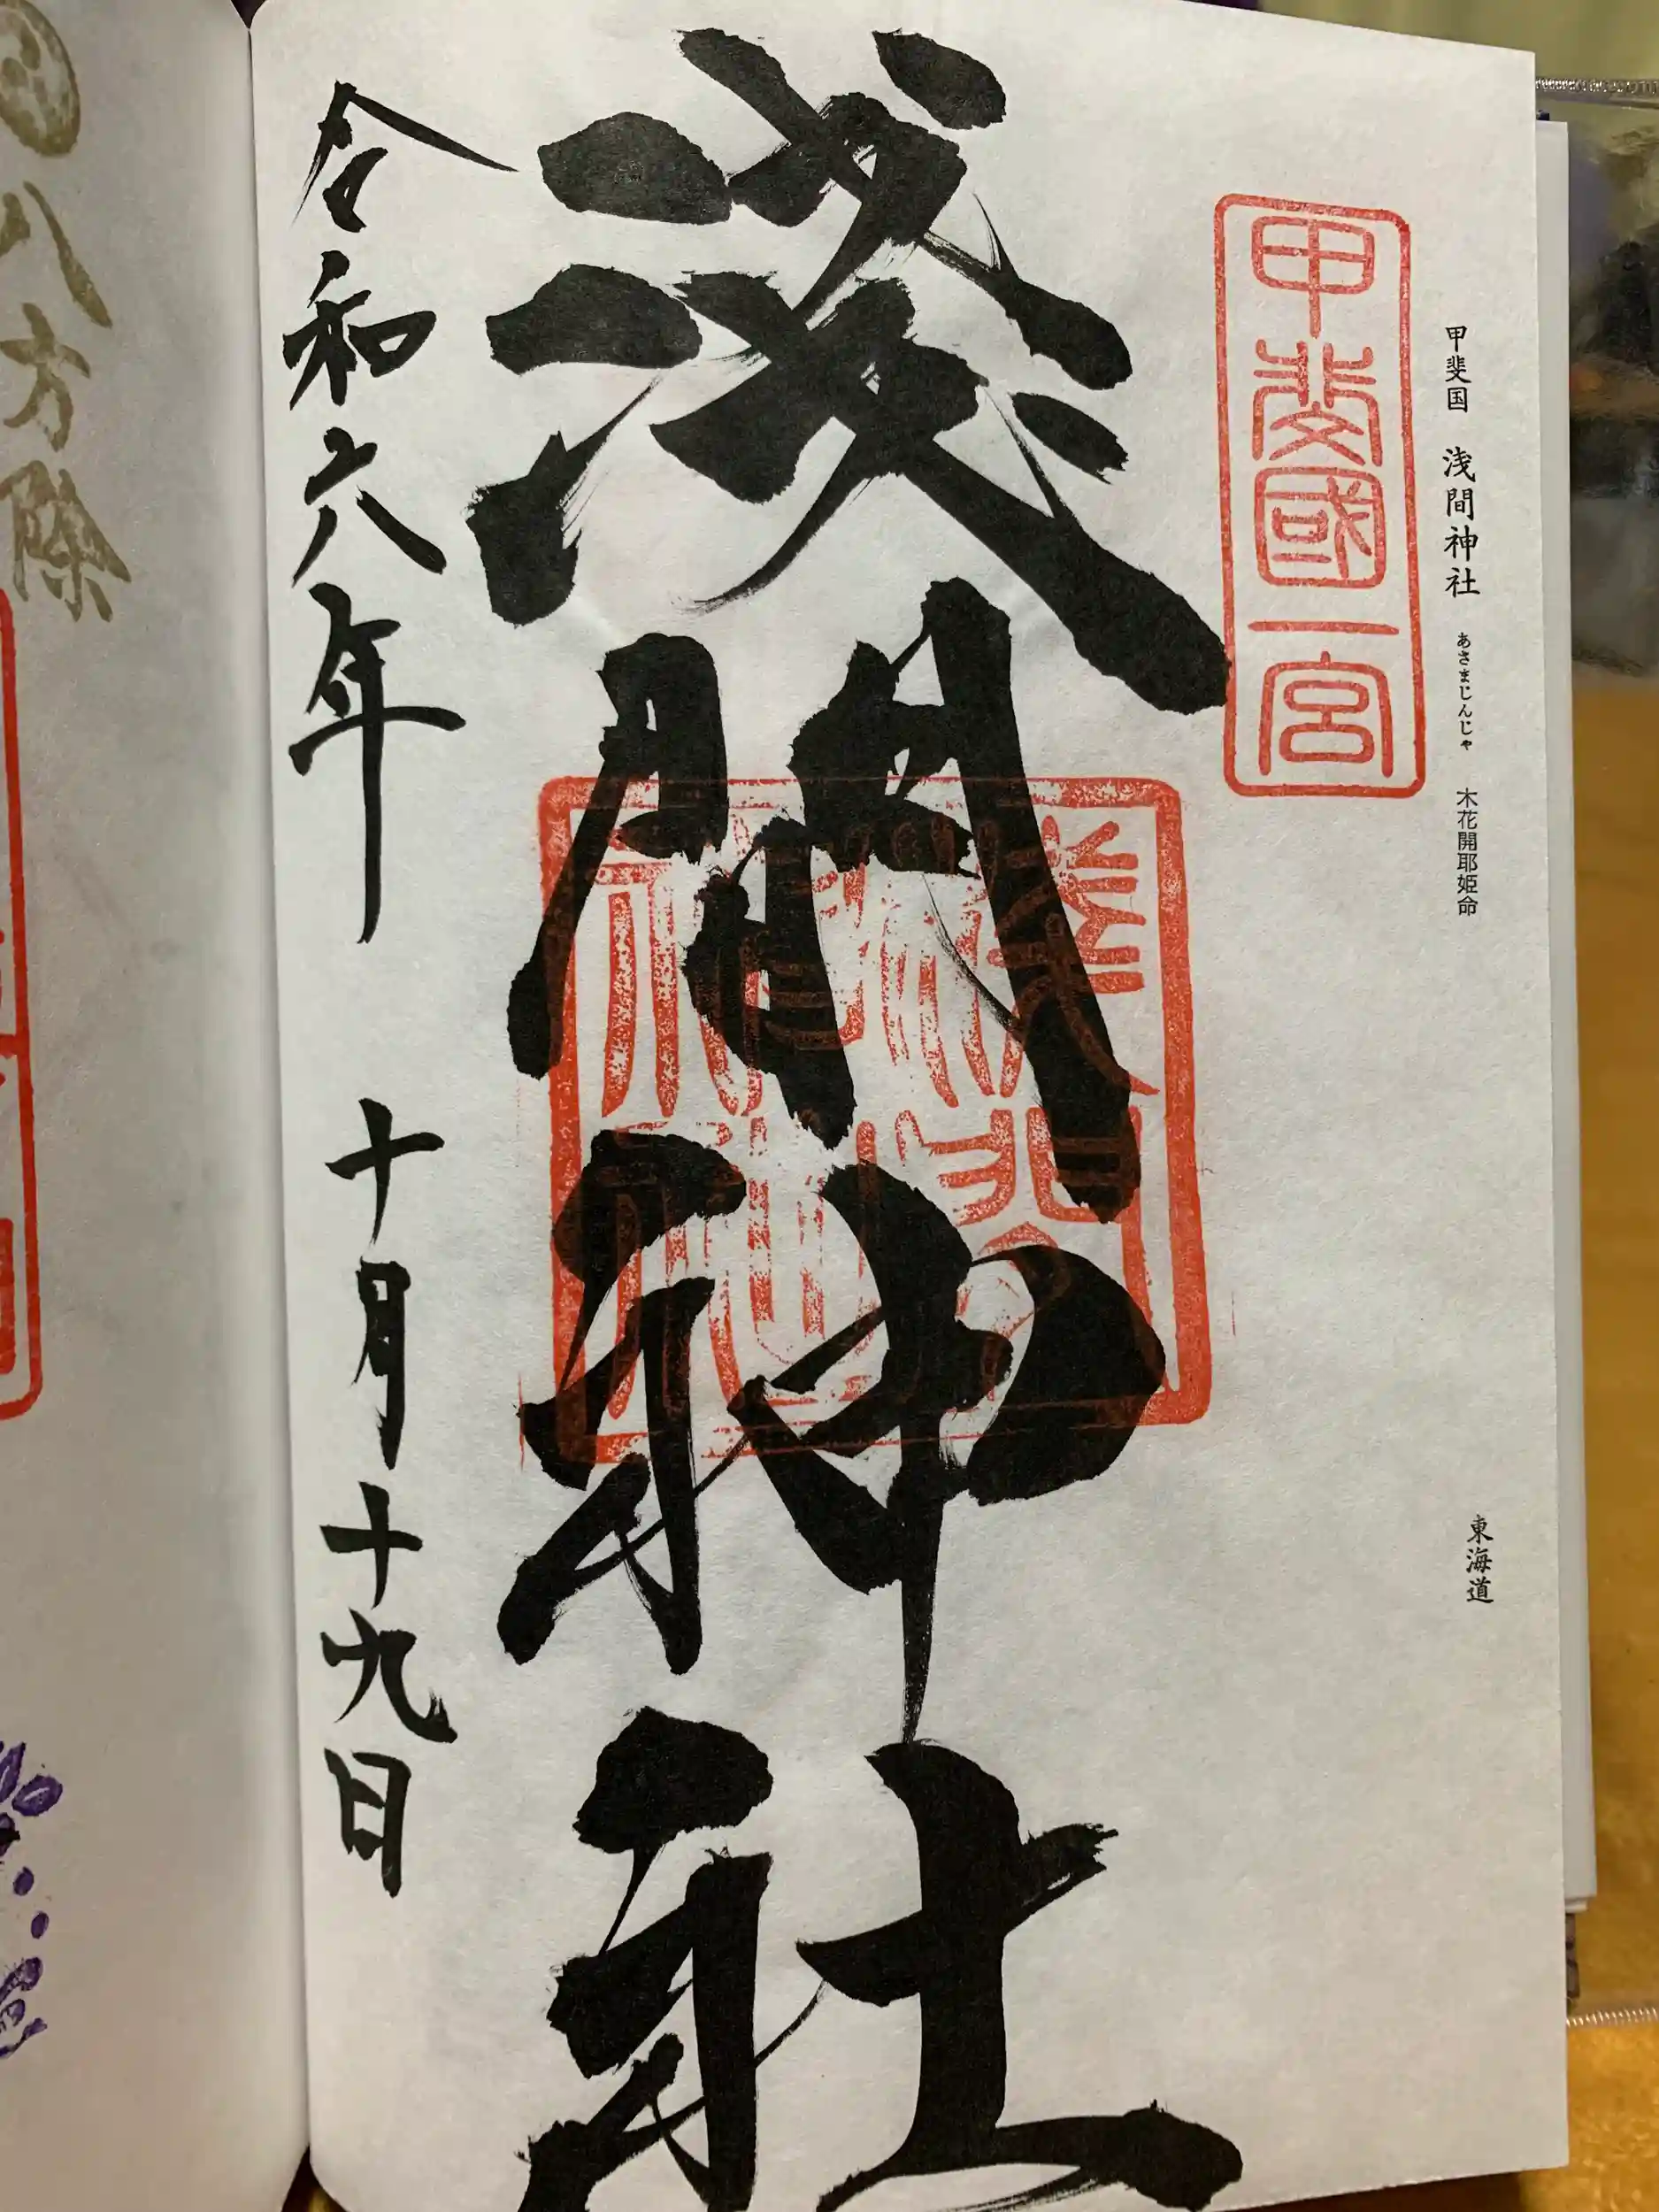 甲斐国 浅間神社 あさまじんじゃ 木花開耶姫命
東海道
甲斐國一宮
淺間神社
令和六年 十月十九日
八方除